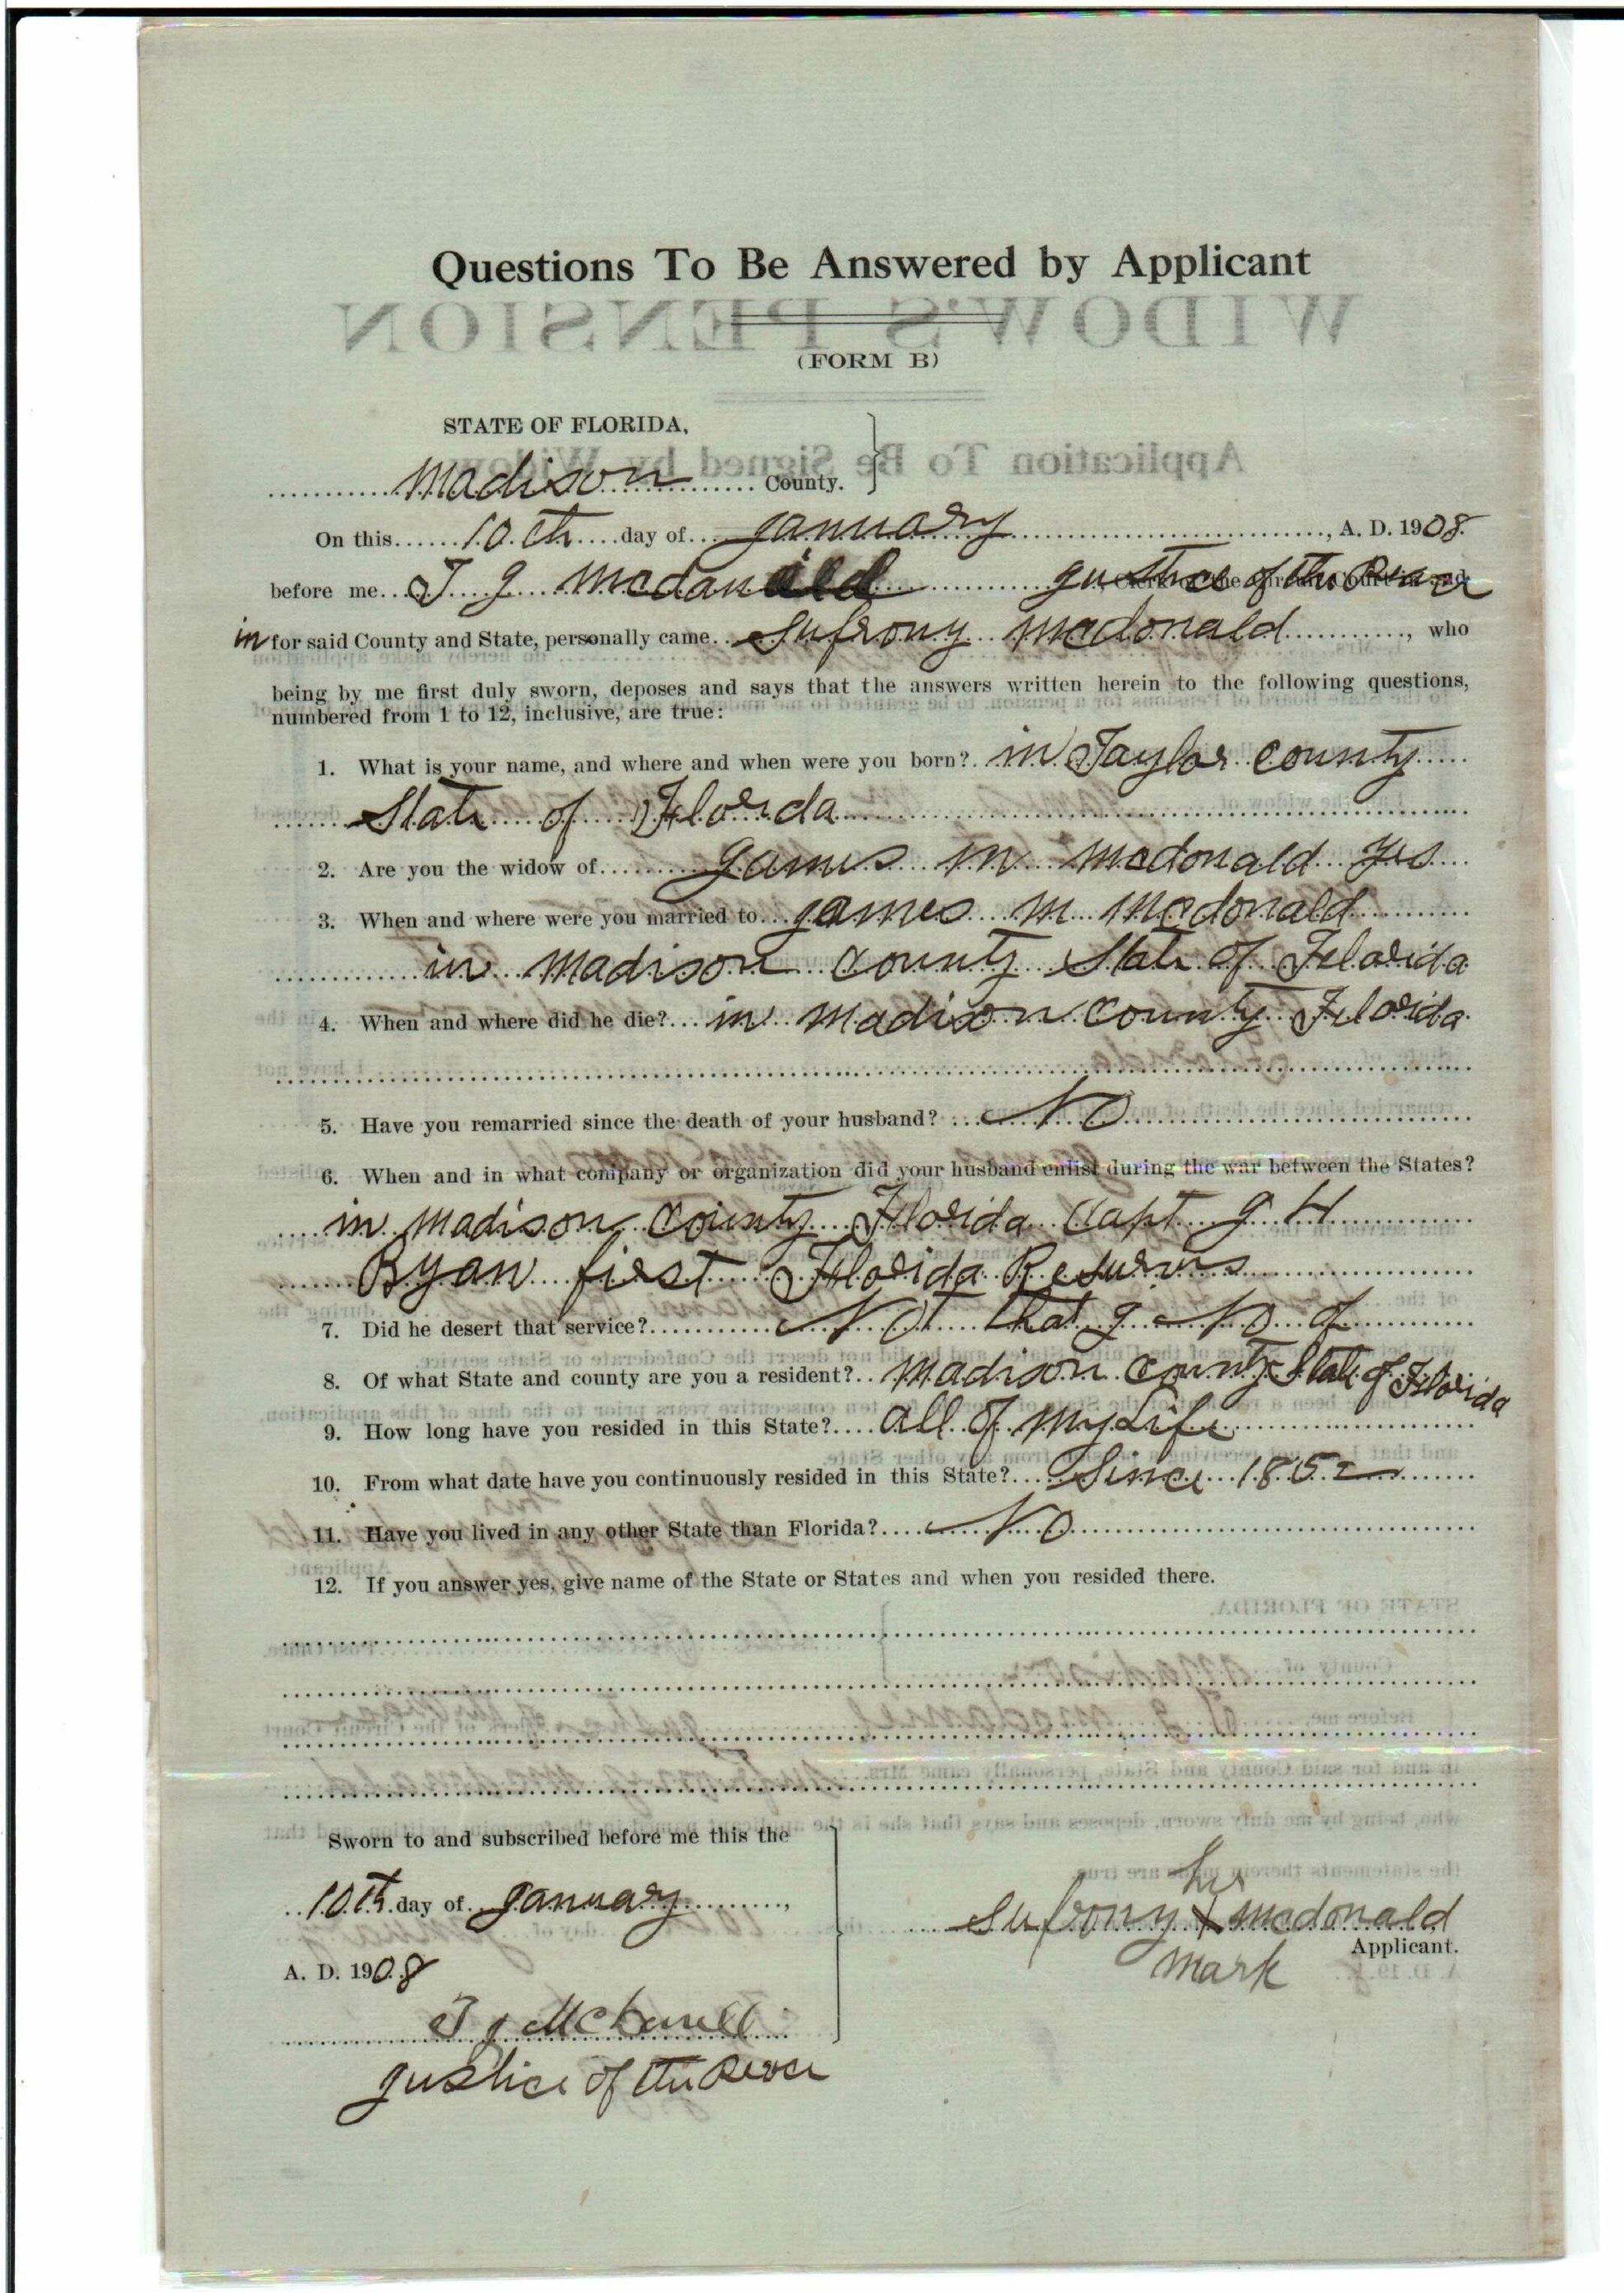 Questions To Be Answered by Applicant
WIDOW'S PENSION
(FORM B)
STATE OF FLORIDA,
Application To Be Signed by Widow
Madison County.
On this 10th day of January, A. D. 1908.
before me J J Mcdan Justice of the Peace
in for said County and State, personally came Sufrony Mcdonald, who
being by me first duly sworn, deposes and says that the answers written herein to the following questions,
numbered from 1 to 12, inclusive, are true:
1. What is your name, and where and when were you born? in Taylor County
State of Florida
2. Are you the widow of James M Mcdonald yes
3. When and where were you married to James M Mcdonald
in Madison County State of Florida
4. When and where did he die? in Madison County Florida
5. Have you remarried since the death of your husband? No
6. When and in what company or organization did your husband enlist during the war between the States?
in Madison County Florida Capt J H
Ryan first Florida Resurvs
7. Did he desert that service? Not that J No of
8. Of what State and county are you a resident? Madison County State of Florida
9. How long have you resided in this State? all of my Life
10. From what date have you continuously resided in this State? Since 1852
11. Have you lived in any other State than Florida? No
12. If you answer yes, give name of the State or States and when you resided there.
Sworn to and subscribed before me this the
10th day of January,
A. D. 1908
her
Sufrony X Mcdonald
Applicant.
Mark
Justice of the Peace